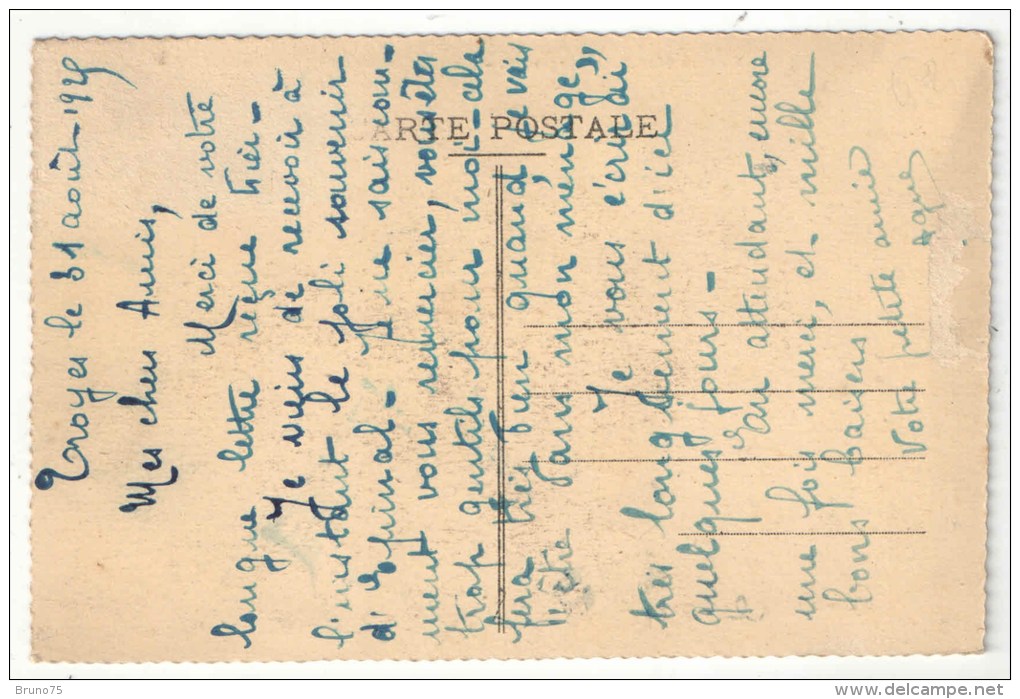 Troyes le 31 août 1925
Mes chers Amis,
Merci de votre
longue lettre reçue hier -
Je viens de recevoir à
l'instant le joli souvenir
d'Epinal - Je ne sais com-
ment vous remercier, vous êtes
trop gentils pour moi - cela
fera très bien quand je vais
l'être dans mon ménage
Je vous écrirai
très longuement d'ici
quelques jours -
En attendant, encore
une fois merci, et mille
bons baisers
Votre petite amie
CARTE POSTALE
Bruno75
delcampe.net